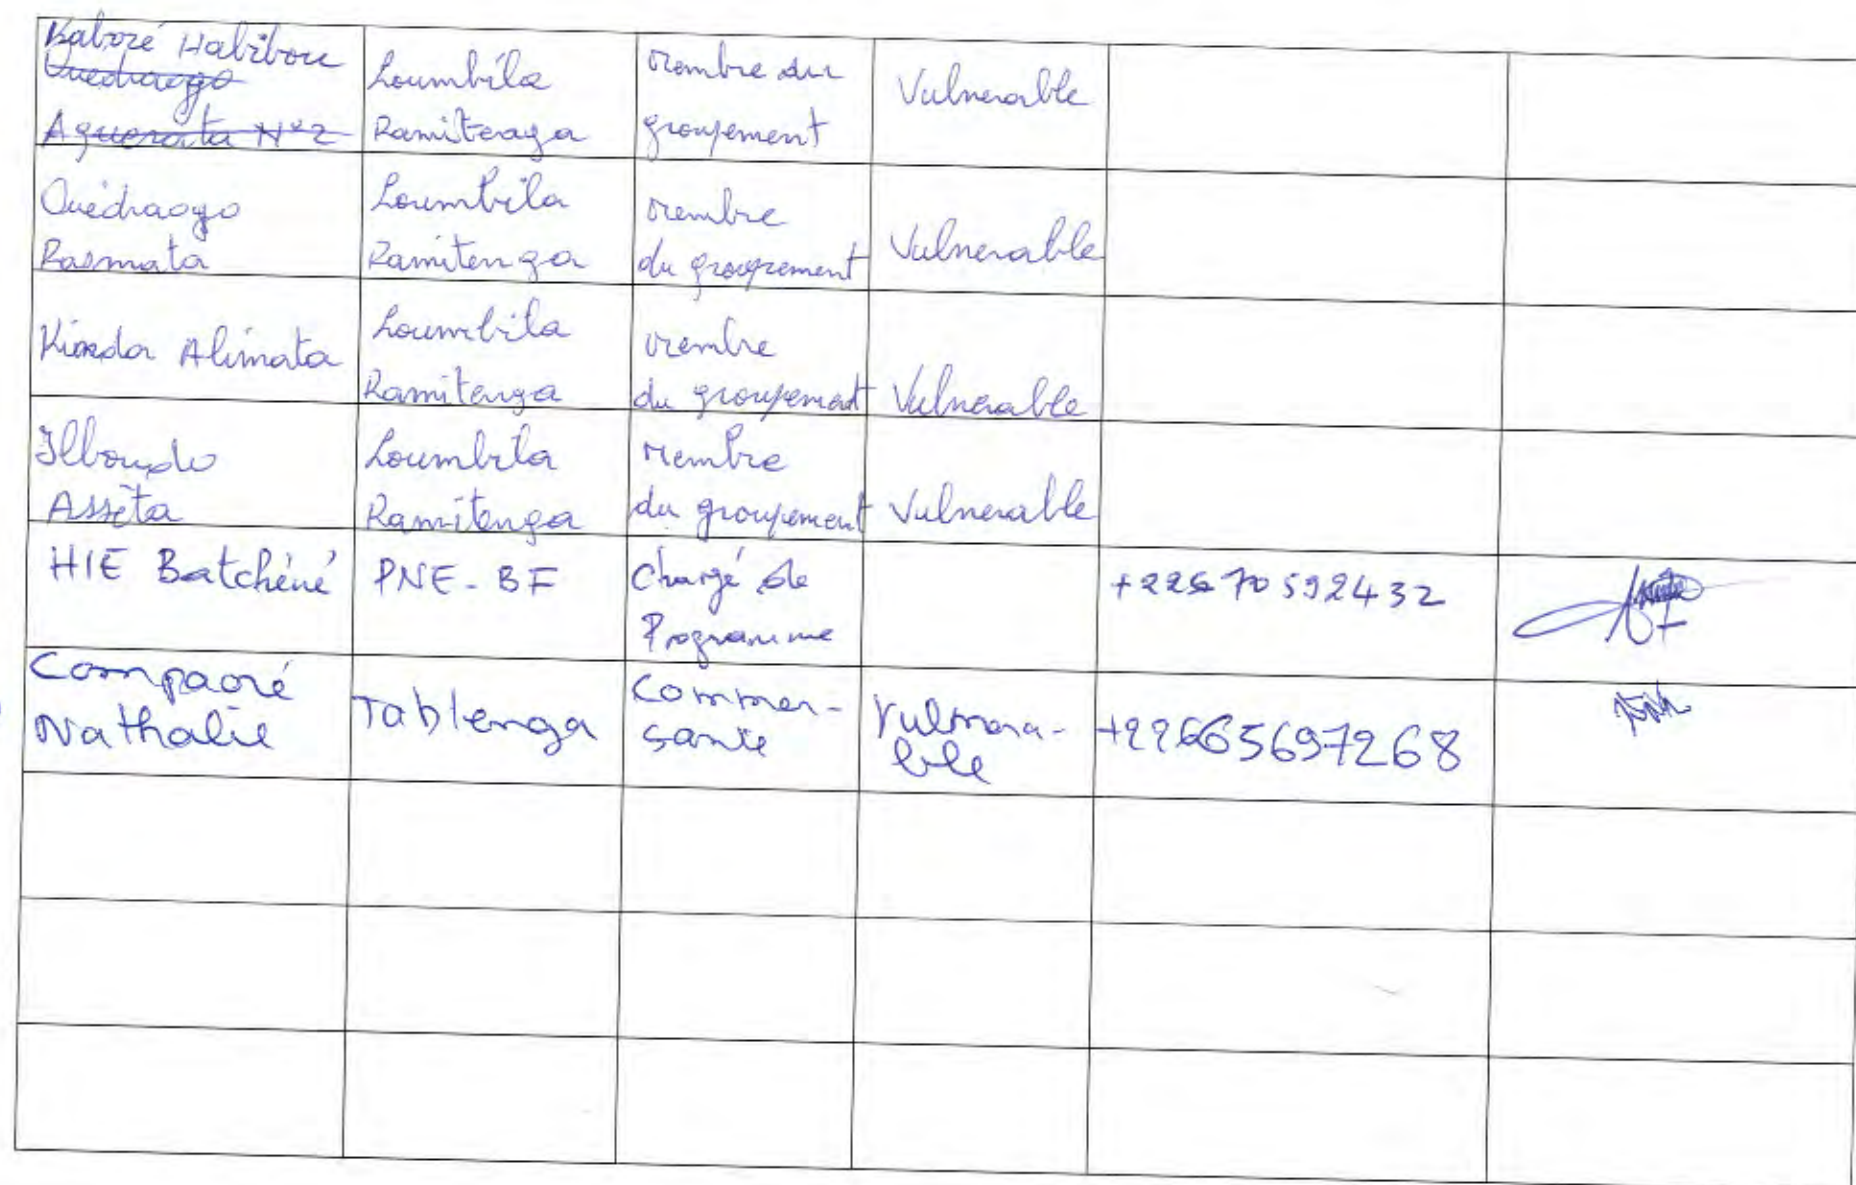 Kaboré Habibou
Ouedraogo
Aguerata N°2
Loumbila
Ramitenga
membre du
groupement
Vulnerable
Ouédraogo
Rasmata
Loumbila
Ramitenga
membre
du groupement
Vulnerable
Kinda Alimata
Loumbila
Ramitenga
membre
du groupement
Vulnerable
Ilboudo
Asséta
Loumbila
Ramitenga
Membre
du groupement
Vulnerable
HIE Batchéné
PNE-BF
Chargé de
Programme
+226 70 592432
Compaoré
Nathalie
Tablenga
Commer-
sante
Vulnera-
ble
+22665697268